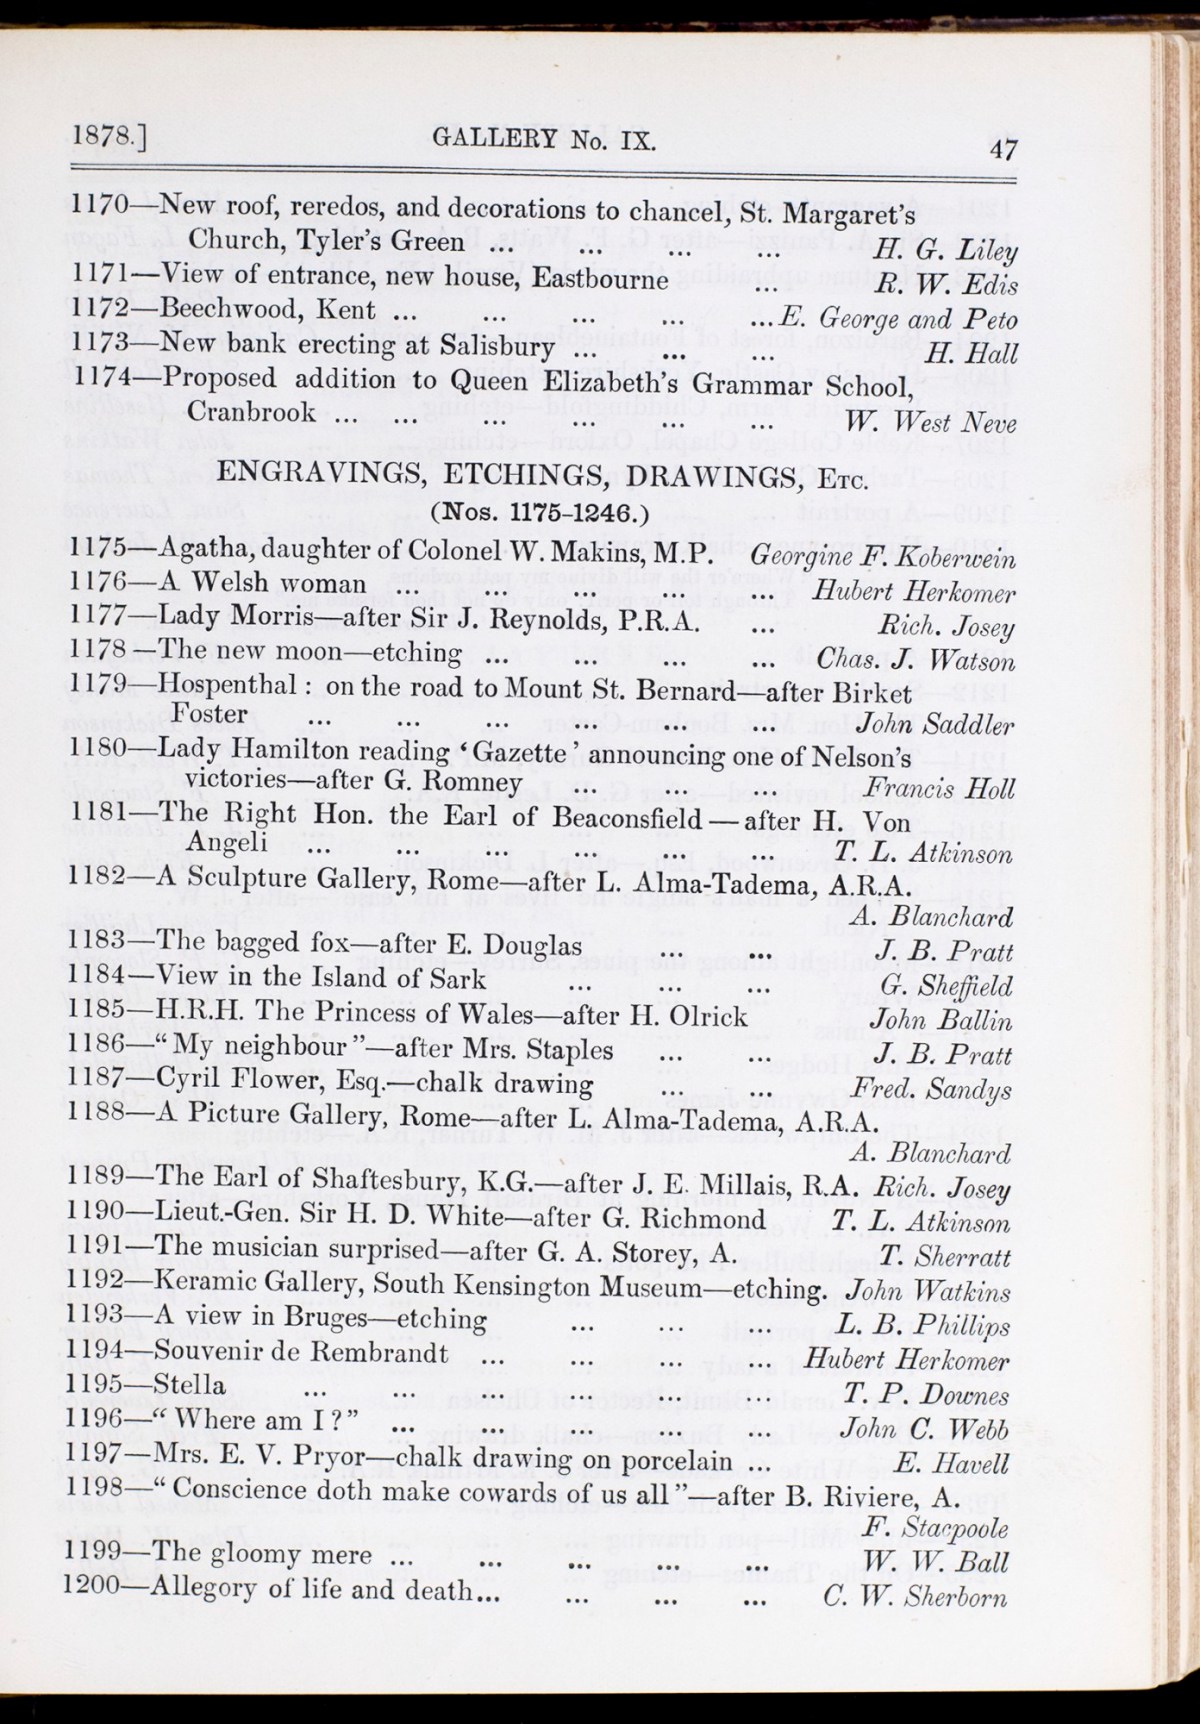 1878.] GALLERY No. IX. 47
1170—New roof, reredos, and decorations to chancel, St. Margaret's
Church, Tyler's Green ... ... ... ... H. G. Liley
1171—View of entrance, new house, Eastbourne ... R. W. Edis
1172—Beechwood, Kent ... ... ... ... ... E. George and Peto
1173—New bank erecting at Salisbury ... ... ... H. Hall
1174—Proposed addition to Queen Elizabeth's Grammar School,
Cranbrook ... ... ... ... ... ... W. West Neve
ENGRAVINGS, ETCHINGS, DRAWINGS, ETC.
(Nos. 1175-1246.)
1175—Agatha, daughter of Colonel W. Makins, M.P. Georgine F. Koberwein
1176—A Welsh woman ... ... ... ... ... Hubert Herkomer
1177—Lady Morris—after Sir J. Reynolds, P.R.A. ... Rich. Josey
1178—The new moon—etching ... ... ... ... Chas. J. Watson
1179—Hospenthal : on the road to Mount St. Bernard—after Birket
Foster ... ... ... ... ... ... John Saddler
1180—Lady Hamilton reading ‘Gazette’ announcing one of Nelson's
victories—after G. Romney ... ... ... Francis Holl
1181—The Right Hon. the Earl of Beaconsfield—after H. Von
Angeli ... ... ... ... ... ... T. L. Atkinson
1182—A Sculpture Gallery, Rome—after L. Alma-Tadema, A.R.A.
A. Blanchard
1183—The bagged fox—after E. Douglas ... ... J. B. Pratt
1184—View in the Island of Sark ... ... ... G. Sheffield
1185—H.R.H. The Princess of Wales—after H. Olrick John Ballin
1186—“My neighbour”—after Mrs. Staples ... ... J. B. Pratt
1187—Cyril Flower, Esq.—chalk drawing ... ... Fred. Sandys
1188—A Picture Gallery, Rome—after L. Alma-Tadema, A.R.A.
A. Blanchard
1189—The Earl of Shaftesbury, K.G.—after J. E. Millais, R.A. Rich. Josey
1190—Lieut.-Gen. Sir H. D. White—after G. Richmond T. L. Atkinson
1191—The musician surprised—after G. A. Storey, A. T. Sherratt
1192—Keramic Gallery, South Kensington Museum—etching. John Watkins
1193—A view in Bruges—etching ... ... ... L. B. Phillips
1194—Souvenir de Rembrandt ... ... ... ... Hubert Herkomer
1195—Stella ... ... ... ... ... ... T. P. Downes
1196—“Where am I?” ... ... ... ... ... John C. Webb
1197—Mrs. E. V. Pryor—chalk drawing on porcelain ... E. Havell
1198—“Conscience doth make cowards of us all”—after B. Riviere, A.
F. Stacpoole
1199—The gloomy mere ... ... ... ... ... W. W. Ball
1200—Allegory of life and death... ... ... ... C. W. Sherborn